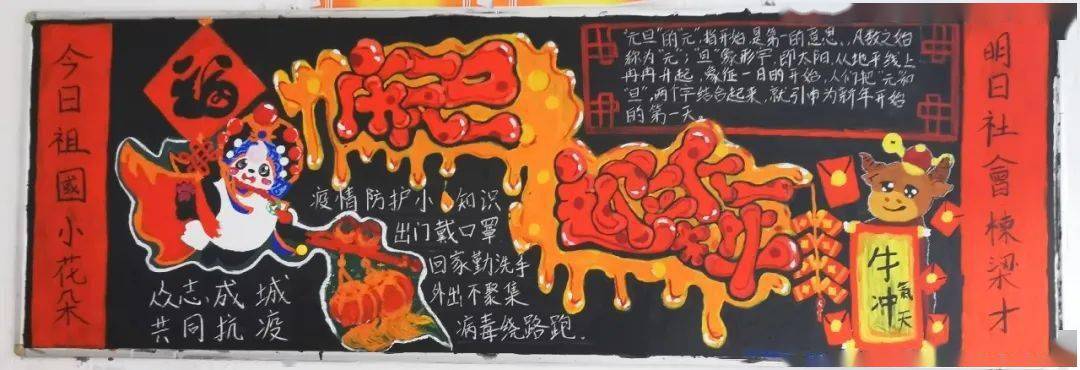 今日祖國小花朵
福
庆元旦
迎新年
"元旦"的"元",指开始是第一的意思,,凡数之始
称为"元";"旦"象形字,即太阳,从地平线上
冉冉升起,象征一日的开始,人们把"元"和
"旦",两个字结合起来,就引申为新年开始
的第一天。
疫情防护小知识
出门戴口罩
回家勤洗手
外出不聚集
病毒绕路跑.
众志成城
共同抗疫
牛氣
冲天
明日社會棟梁才